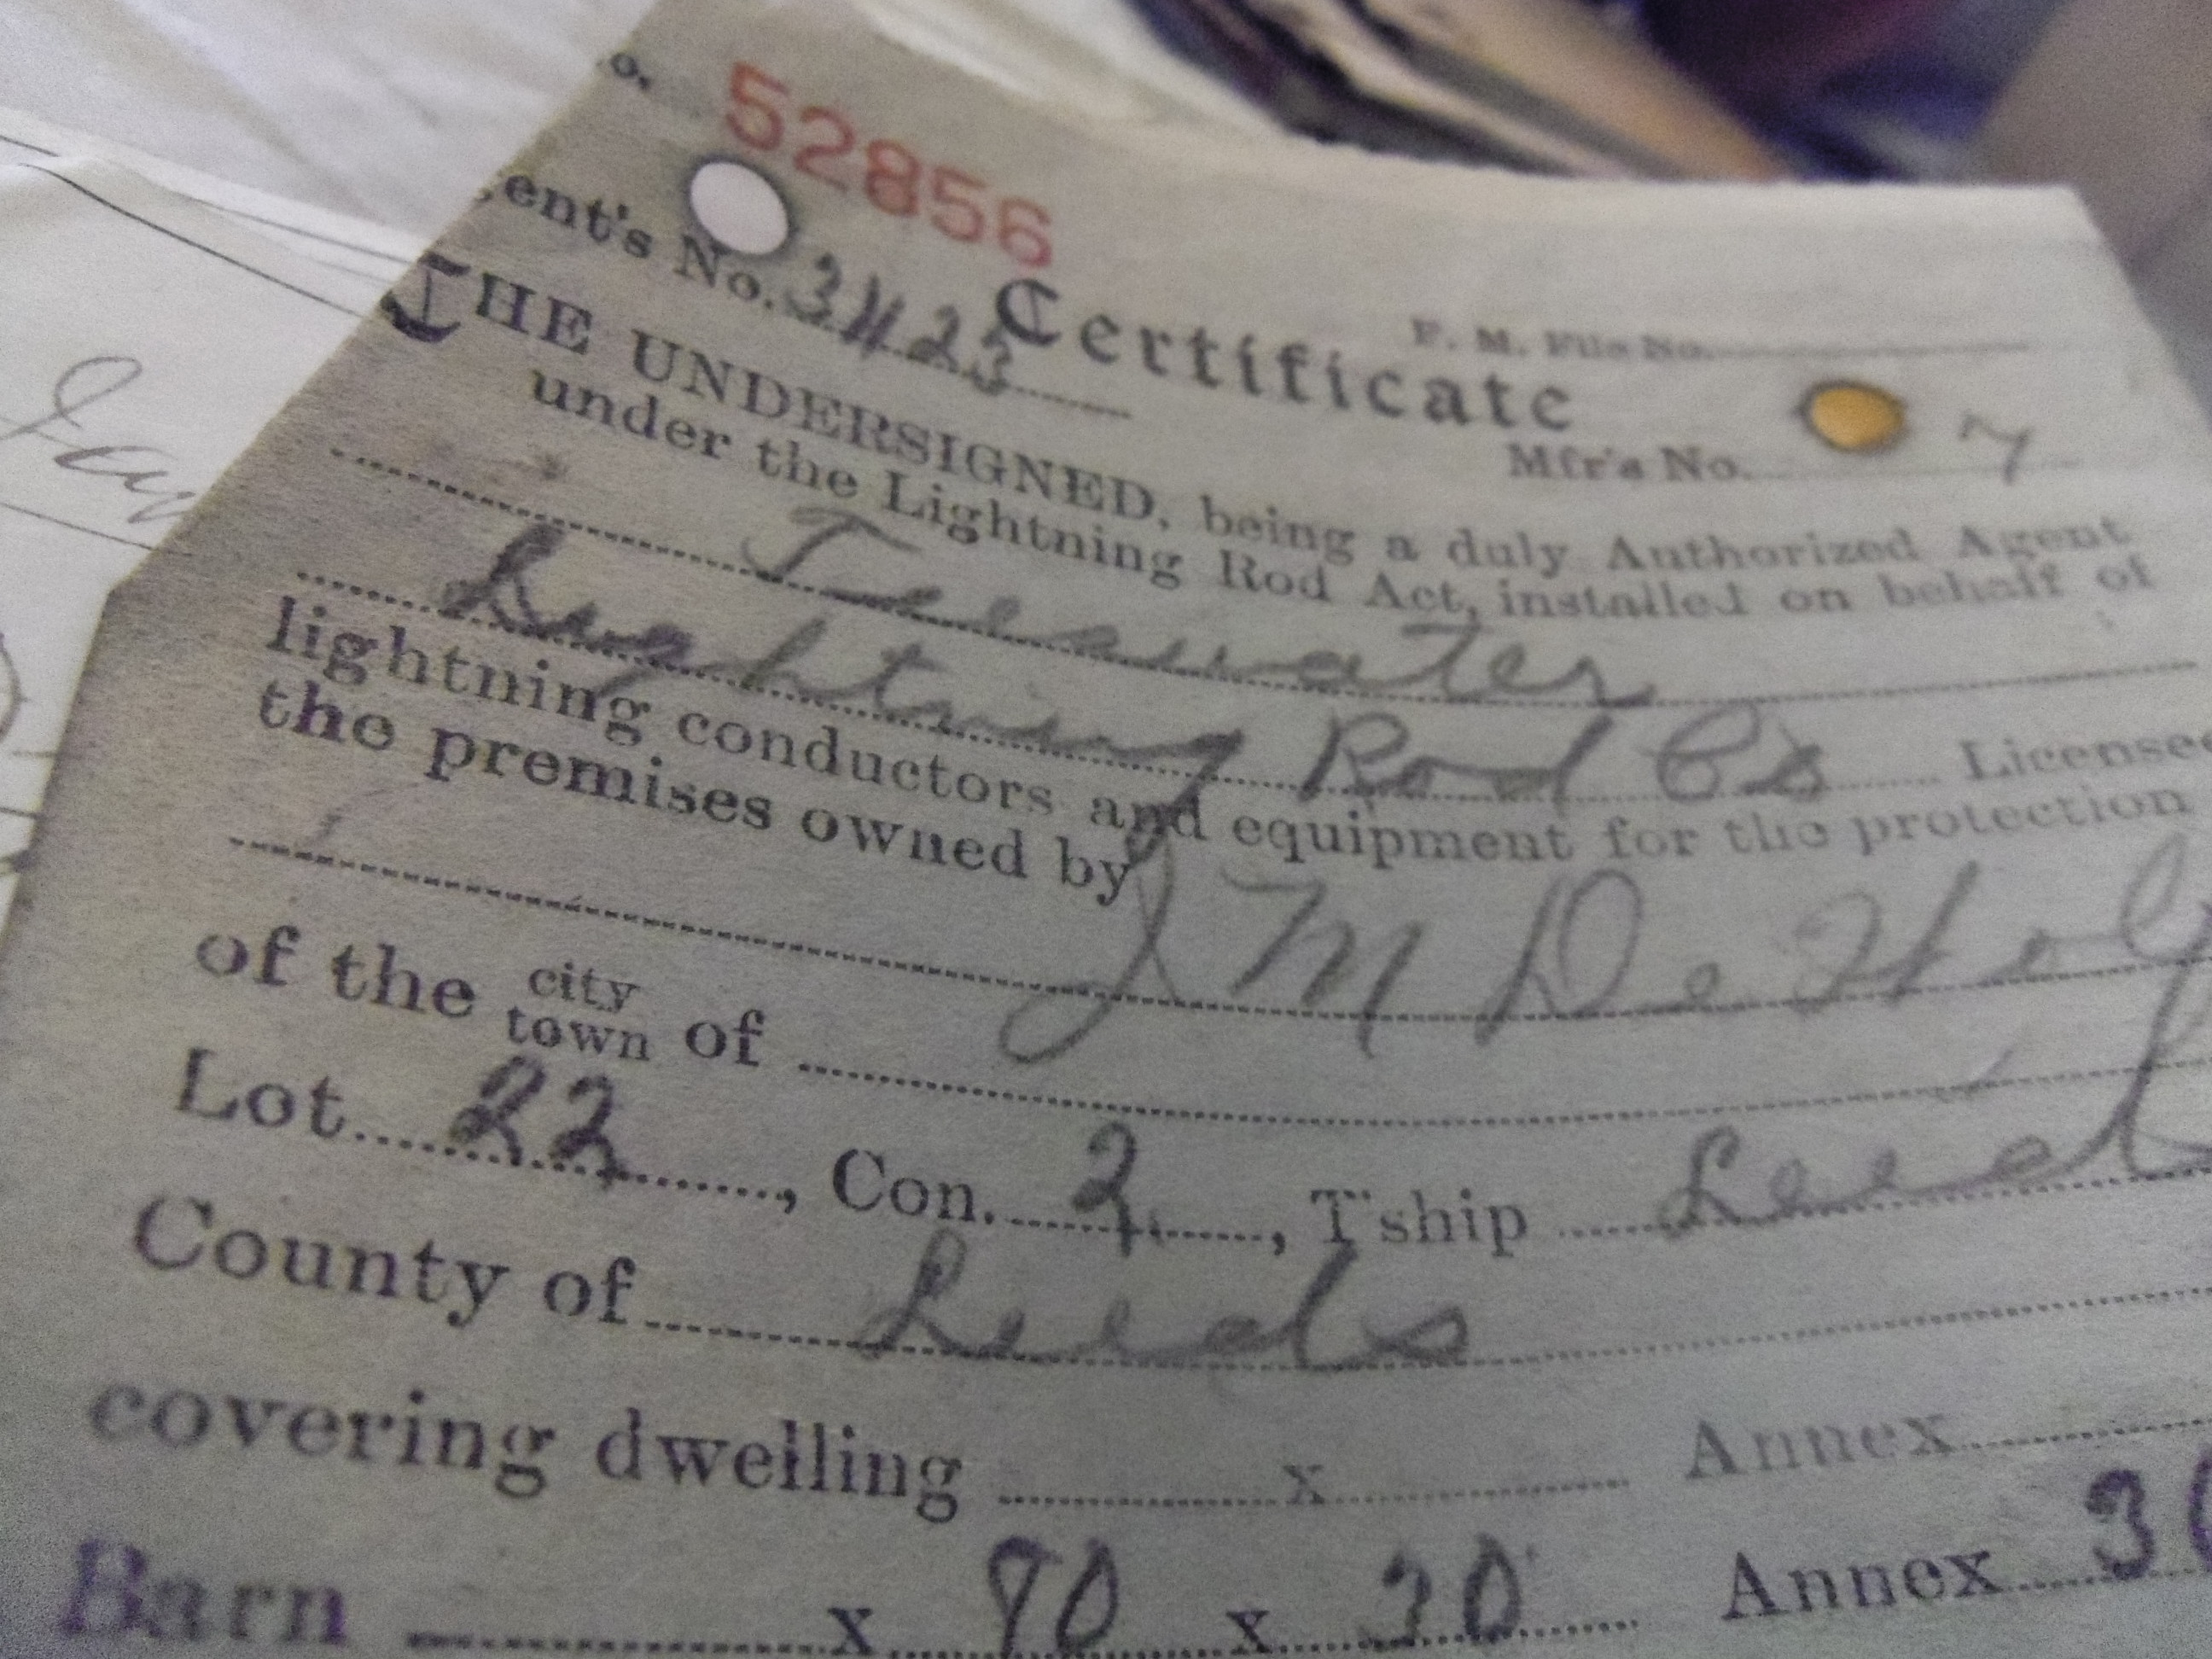 o. 52856
ent's No. 3423
Certificate
F. M. File No.
Mfr's No. 7
THE UNDERSIGNED, being a duly Authorized Agent
under the Lightning Rod Act, installed on behalf of
Teeswater
Lightning Rod Co License
lightning conductors and equipment for the protection
the premises owned by
J M De Wol
of the city town of
Lot 22, Con. 2, T'ship Leeds
County of Leeds
covering dwelling x Annex
Barn x 90 x 30 Annex 3